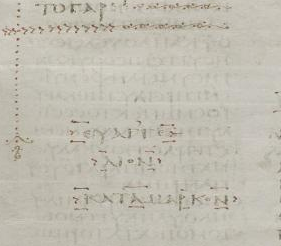 ΤΟΓΑΡ
ΕΥΑΓΓΕ
ΛΙΟΝ
ΚΑΤΑΜΑΡΚΟΝ